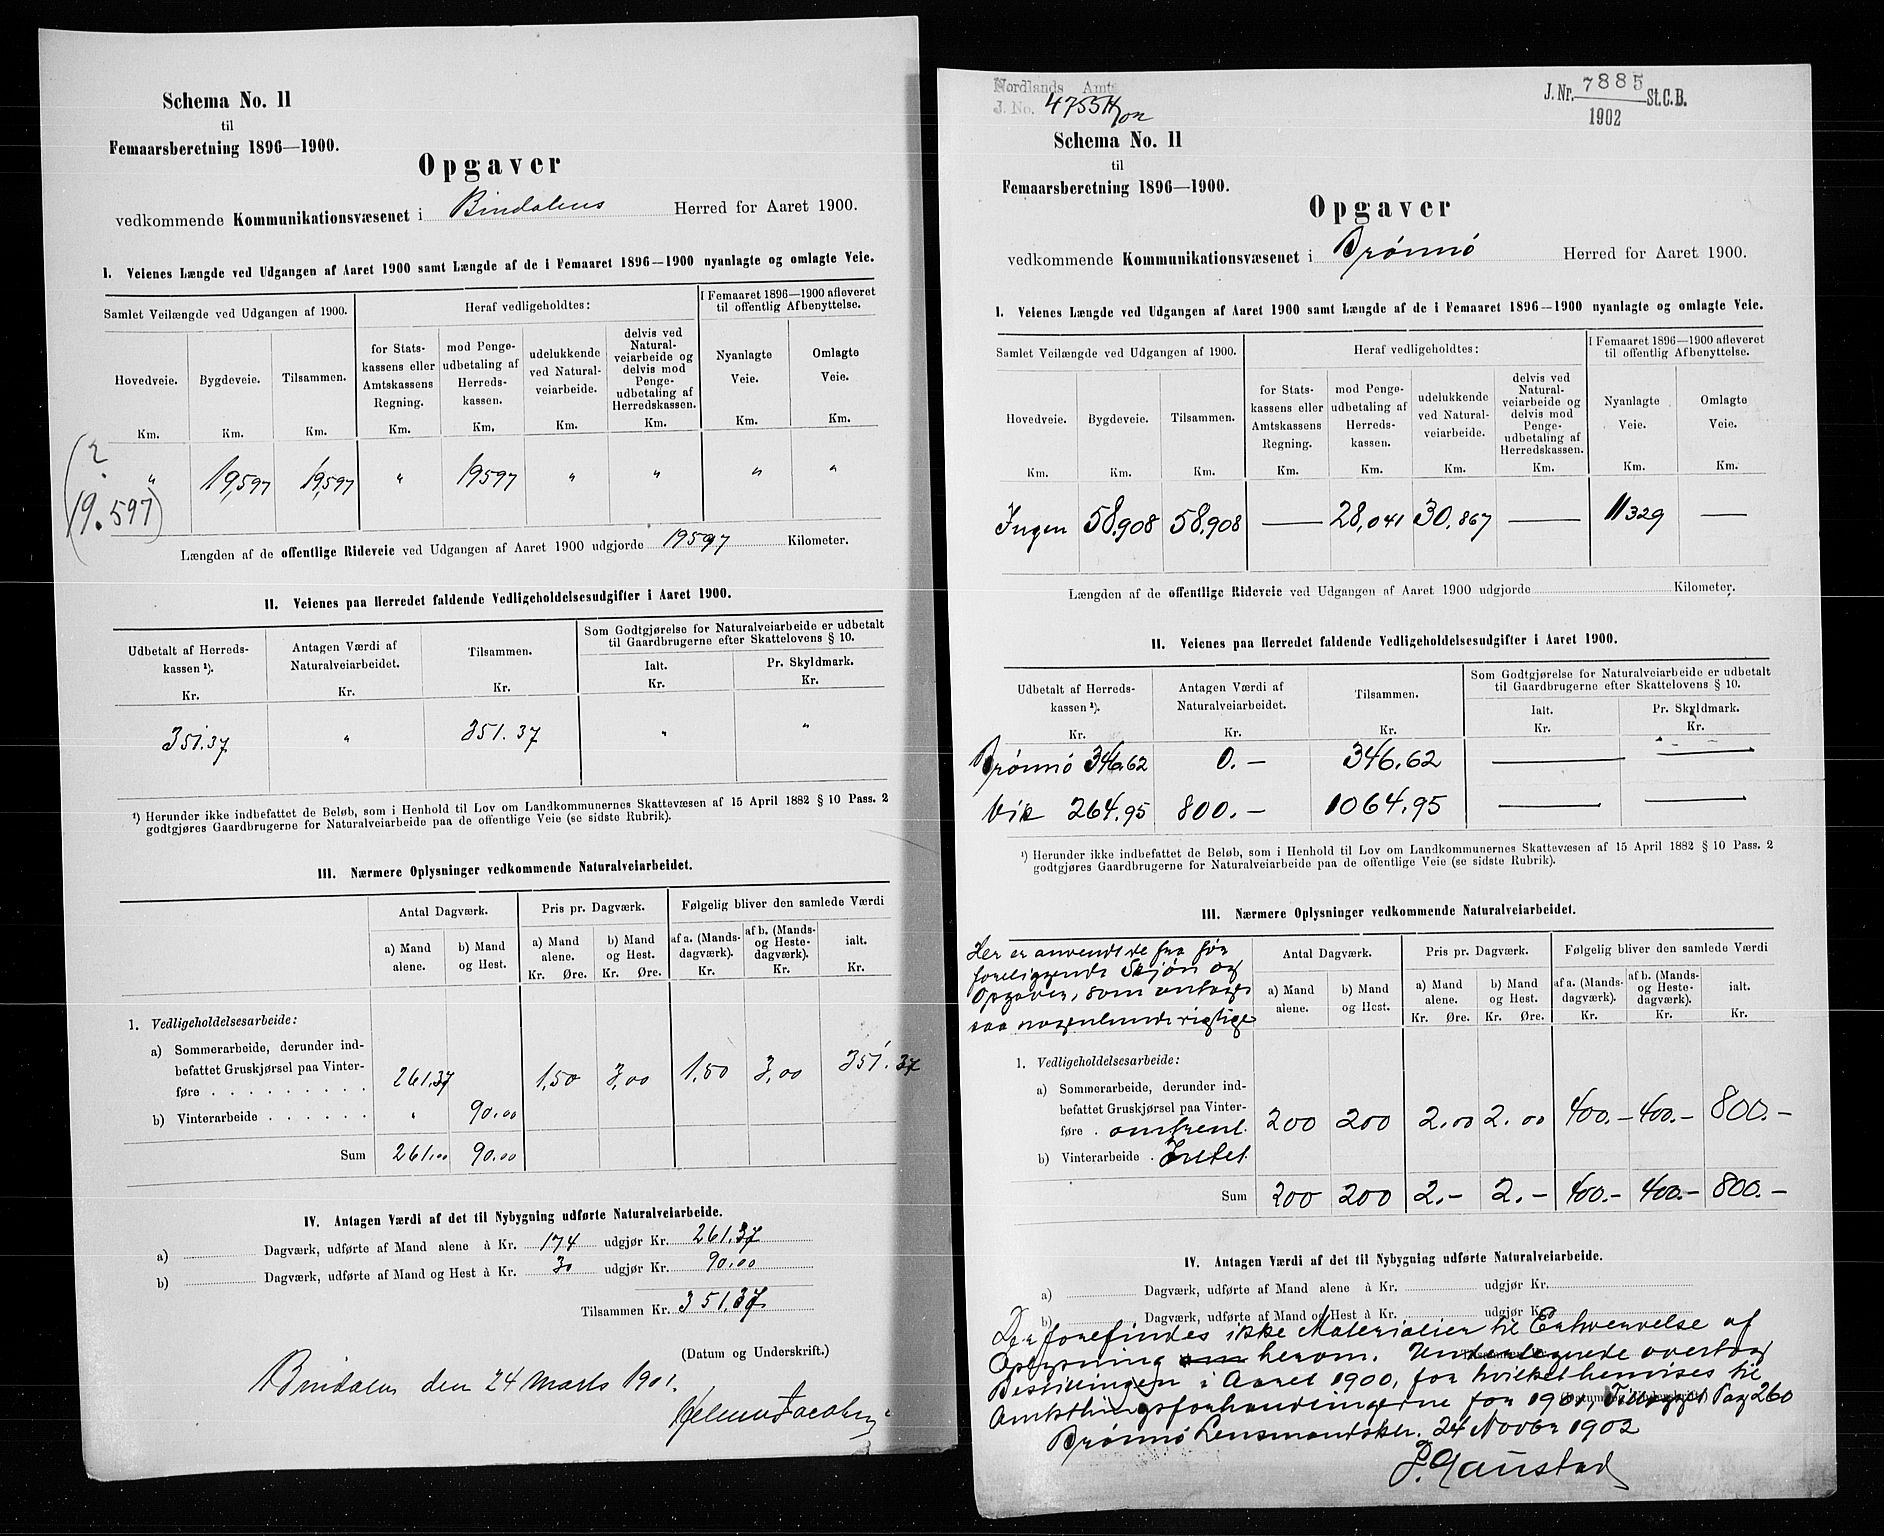 Schema No. 11
til
Femaarsberetning 1896—1900.
Opgaver
vedkommende Kommunikationsvæsenet i Bindalens Herred for Aaret 1900.
I. Veienes Længde ved Udgangen af Aaret 1900 samt Længde af de i Femaaret 1896—1900 nyanlagte og omlagte Veie.
Samlet Veilængde ved Udgangen af 1900.
Heraf vedligeholdtes:
I Femaaret 1896—1900 afleveret til offentlig Afbenyttelse.
Hovedveie. Km.
Bygdeveie. Km.
Tilsammen. Km.
for Statskassens eller Amtskassens Regning. Km.
mod Pengeudbetaling af Herredskassen. Km.
udelukkende ved Naturalveiarbeide. Km.
delvis ved Naturalveiarbeide og delvis mod Pengeudbetaling af Herredskassen. Km.
Nyanlagte Veie. Km.
Omlagte Veie. Km.
(?
19.597)
" 19,597 19,597 " 19597 " " " "
Længden af de offentlige Rideveie ved Udgangen af Aaret 1900 udgjorde 19597 Kilometer.
II. Veienes paa Herredet faldende Vedligeholdelsesudgifter i Aaret 1900.
Udbetalt af Herredskassen ¹). Kr.
Antagen Værdi af Naturalveiarbeidet. Kr.
Tilsammen. Kr.
Som Godtgjørelse for Naturalveiarbeide er udbetalt til Gaardbrugerne efter Skattelovens § 10.
Ialt. Kr.
Pr. Skyldmark. Kr.
351.37 " 351.37 " "
¹) Herunder ikke indbefattet de Beløb, som i Henhold til Lov om Landkommunernes Skattevæsen af 15 April 1882 § 10 Pass. 2
godtgjøres Gaardbrugerne for Naturalveiarbeide paa de offentlige Veie (se sidste Rubrik).
III. Nærmere Oplysninger vedkommende Naturalveiarbeidet.
Antal Dagværk.
Pris pr. Dagværk.
Følgelig bliver den samlede Værdi
a) Mand alene.
b) Mand og Hest.
a) Mand alene. Kr. Øre.
b) Mand og Hest. Kr. Øre.
af a. (Mandsdagværk). Kr.
af b. (Mands- og Hestedagværk). Kr.
ialt. Kr.
1. Vedligeholdelsesarbeide:
a) Sommerarbeide, derunder ind-
befattet Gruskjørsel paa Vinter-
føre 261.37 1,50 3,00 1,50 3,00 351.37
b) Vinterarbeide " 90.00
Sum 261.00 90.00
IV. Antagen Værdi af det til Nybygning udførte Naturalveiarbeide.
a) Dagværk, udførte af Mand alene à Kr. 174 udgjør Kr. 261.37
b) Dagværk, udførte af Mand og Hest à Kr. 30 udgjør Kr. 90.00
Tilsammen Kr. 351.37
(Datum og Underskrift.)
Bindalen den 24 Marts 1901.
Nordlands Amt
J. No. 4755
J. Nr. 7885 St.C.B.
1902
Schema No. 11
til
Femaarsberetning 1896—1900.
Opgaver
vedkommende Kommunikationsvæsenet i Brønnø Herred for Aaret 1900.
I. Veienes Længde ved Udgangen af Aaret 1900 samt Længde af de i Femaaret 1896—1900 nyanlagte og omlagte Veie.
Samlet Veilængde ved Udgangen af 1900.
Heraf vedligeholdtes:
I Femaaret 1896—1900 afleveret til offentlig Afbenyttelse.
Hovedveie. Km.
Bygdeveie. Km.
Tilsammen. Km.
for Statskassens eller Amtskassens Regning. Km.
mod Pengeudbetaling af Herredskassen. Km.
udelukkende ved Naturalveiarbeide. Km.
delvis ved Naturalveiarbeide og delvis mod Pengeudbetaling af Herredskassen. Km.
Nyanlagte Veie. Km.
Omlagte Veie. Km.
Ingen 58,908 58,908 — 28,041 30,867 — 11329 —
Længden af de offentlige Rideveie ved Udgangen af Aaret 1900 udgjorde Kilometer.
II. Veienes paa Herredet faldende Vedligeholdelsesudgifter i Aaret 1900.
Udbetalt af Herredskassen ¹). Kr.
Antagen Værdi af Naturalveiarbeidet. Kr.
Tilsammen. Kr.
Som Godtgjørelse for Naturalveiarbeide er udbetalt til Gaardbrugerne efter Skattelovens § 10.
Ialt. Kr.
Pr. Skyldmark. Kr.
Brønnø 346.62 0.— 346.62 — —
Vik 264.95 800.— 1064.95 — —
¹) Herunder ikke indbefattet de Beløb, som i Henhold til Lov om Landkommunernes Skattevæsen af 15 April 1882 § 10 Pass. 2
godtgjøres Gaardbrugerne for Naturalveiarbeide paa de offentlige Veie (se sidste Rubrik).
III. Nærmere Oplysninger vedkommende Naturalveiarbeidet.
Her er anvendt de fra før
foreliggende Skjøn og
Opgaver, som antages
saa nogenlunde rigtige
Antal Dagværk.
Pris pr. Dagværk.
Følgelig bliver den samlede Værdi
a) Mand alene.
b) Mand og Hest.
a) Mand alene. Kr. Øre.
b) Mand og Hest. Kr. Øre.
af a. (Mandsdagværk). Kr.
af b. (Mands- og Hestedagværk). Kr.
ialt. Kr.
1. Vedligeholdelsesarbeide:
a) Sommerarbeide, derunder ind-
befattet Gruskjørsel paa Vinter-
føre . omtrent. 200 200 2.00 2.00 400.— 400.— 800.—
b) Vinterarbeide . Intet.
Sum 200 200 2.— 2.— 400.— 400.— 800.—
IV. Antagen Værdi af det til Nybygning udførte Naturalveiarbeide.
a) Dagværk, udførte af Mand alene à Kr. udgjør Kr.
b) Dagværk, udførte af Mand og Hest à Kr. udgjør Kr.
Der forefindes ikke Materialier til Erhvervelse af
Oplysning om herom. Undertegnede overtog
Bestillingen i Aaret 1900, for hvilket henvises til
Amtsthingsforhandlingerne for 1901, Pag 260
(Datum og Underskrift.)
Brønnø Lensmandskt. 24 Novbr 1902
P. Gaustad